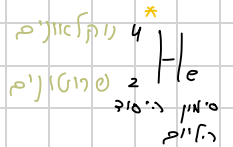 *
נוקלאונים 4
He
פרוטונים 2
סימון היסוד
הליום